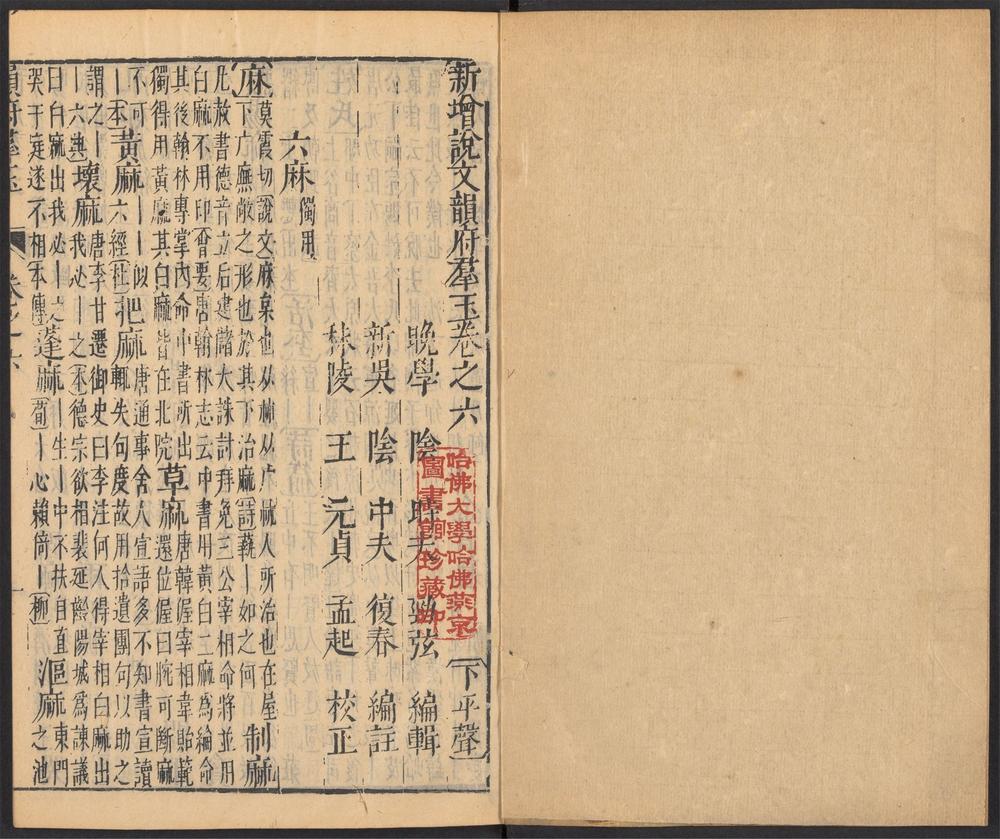 新增說文韻府羣玉卷之六 下平聲
晚學 陰 時夫 勁弦 編輯
新吳 陰 中夫 復春 編註
秣陵 王 元貞 孟起 校正
六麻 獨用
麻 莫霞切說文麻枲也从𣏟从广𣏟人所治也在屋
下广廡敞之形也於其下治麻詩蓺丨如之何 制麻
凡赦書德音立后建諸大誅討拜免三公宰相命將並用
白麻不用印會要唐翰林志云中書用黃白二麻爲綸命
其後翰林專掌內命中書所出
獨得用黃麻其白麻皆在北院 草麻 唐韓偓宰相韋貽範
還位偓曰腕可斷麻
不可丨本 黃麻 丨似六經杜 把麻 唐通事舍人宣語多不知書宣讀
輒失句度故用拾遺團句以助之
謂之丨丨六典 壞麻 唐李甘遷御史曰李注何人得宰相白麻出
我必丨之本德宗欲相裴延齡陽城爲諫議
曰白麻出我必丨之
哭于庭遂不相本傳 蓬麻 丨生丨中不扶自直
荀丨心賴倚丨柳 漚麻 東門
之池
韻府羣玉 卷之六 一
哈佛大學哈佛燕京
圖書館珍藏印